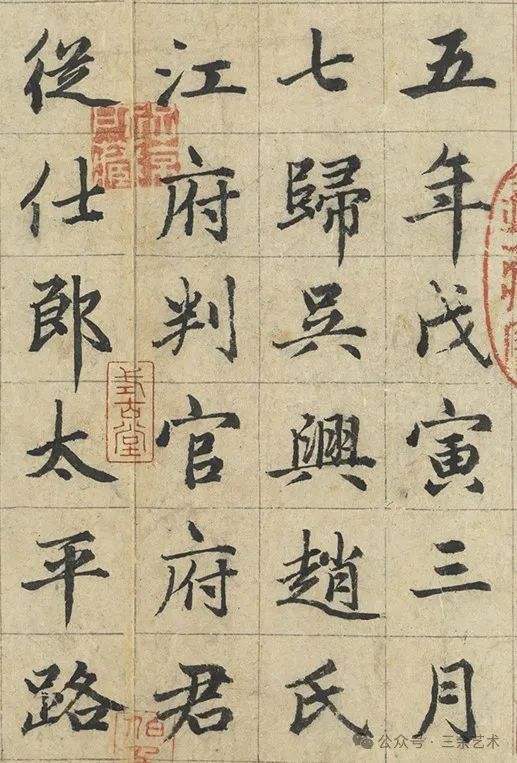 五年戊寅三月
七歸吳興趙氏
江府判官府君
從仕郎太平路
式古堂
公众号·三余艺术